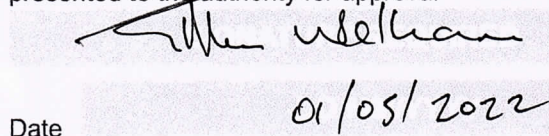 presented to the authority for approval.
Date 01/05/2022